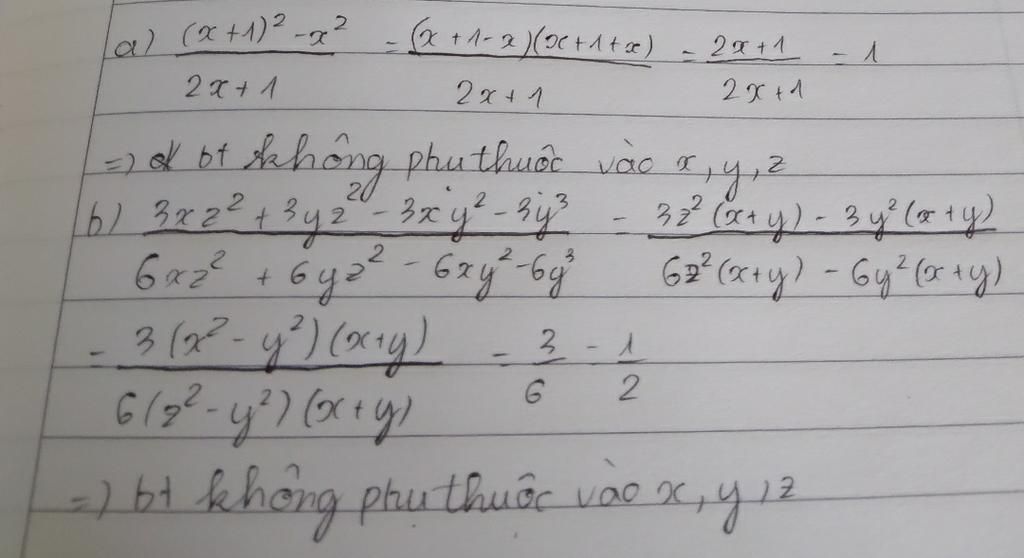 a) ((x+1)² - x²)/(2x+1) = ((x+1-x)(x+1+x))/(2x+1) = (2x+1)/(2x+1) = 1
=) bt không phu thuôc vào x, y, z
b) (3xz² + 3yz² - 3xy² - 3y³)/(6xz² + 6yz² - 6xy² - 6y³) = (3z²(x+y) - 3y²(x+y))/(6z²(x+y) - 6y²(x+y))
= (3(x² - y²)(x+y))/(6(z² - y²)(x+y)) = 3/6 = 1/2
=) bt không phu thuôc vào x, y, z